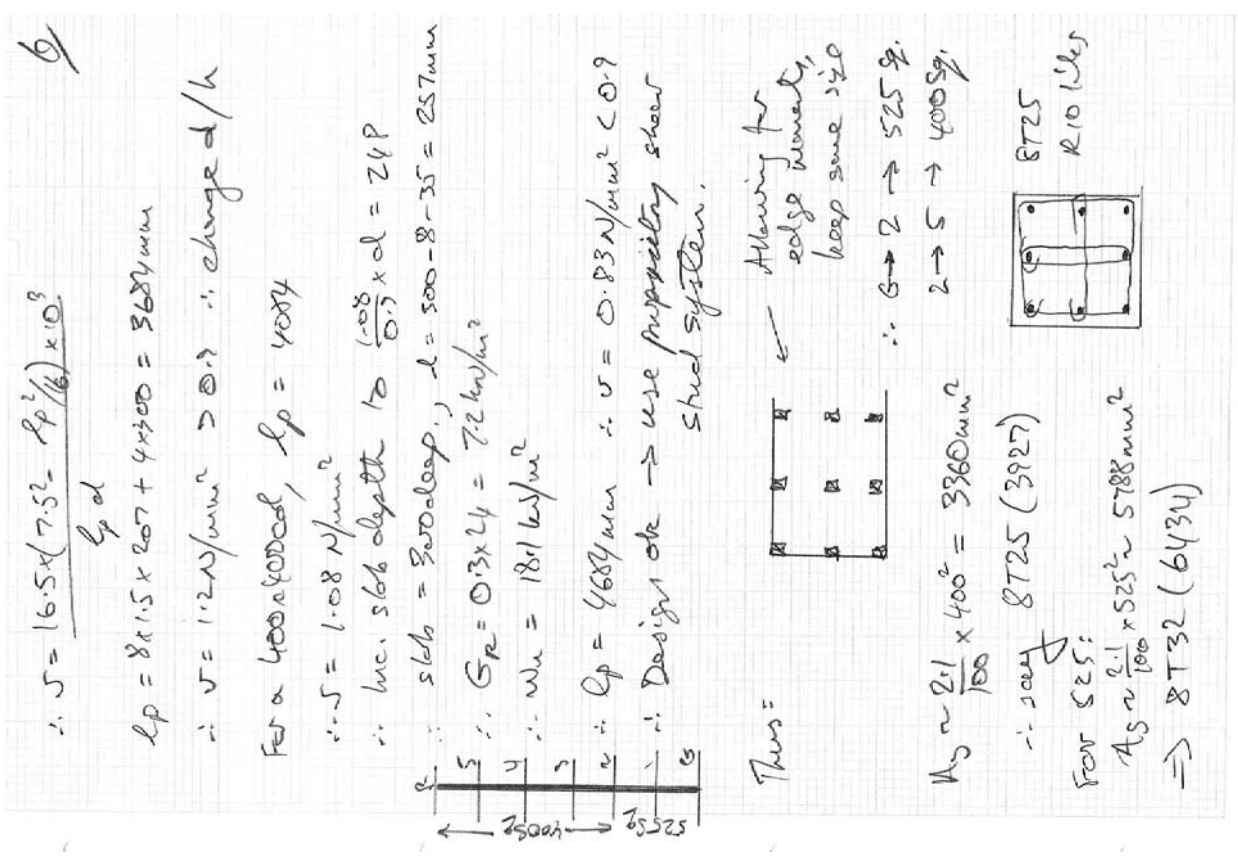 6/
∴ v = 16.5×(7.5² - lp²/16) × 10³
lp d
lp = 8×1.5×207 + 4×300 = 3684mm
∴ v = 1.2N/mm² > 0.9 ∴ change d/h
For a 400×400col, lp = 4084
∴ v = 1.08 N/mm²
∴ Inc. slab depth to 1.08/0.9 × d = 248
∴ slab = 300deep, d = 300-8-35 = 257mm
∴ GR = 0.3×24 = 7.2kN/m²
∴ wu = 18.1 kN/m²
∴ lp = 4684mm ∴ v = 0.83N/mm² < 0.9
∴ Design ok → use proprietary shear
stud system.
R
5
4
3
2
1
G
400sq
525sq
Thus:
← Allowing for
edge moments,
keep same size
∴ G → 2 → 525 sq.
2 → 5 → 400sq.
As ~ 2.1/100 × 400² = 3360mm²
∴ say 8T25 (3927)
For 525:
As ~ 2.1/100 × 525² ~ 5788mm²
⇒ 8T32 (6434)
8T25
R10 links